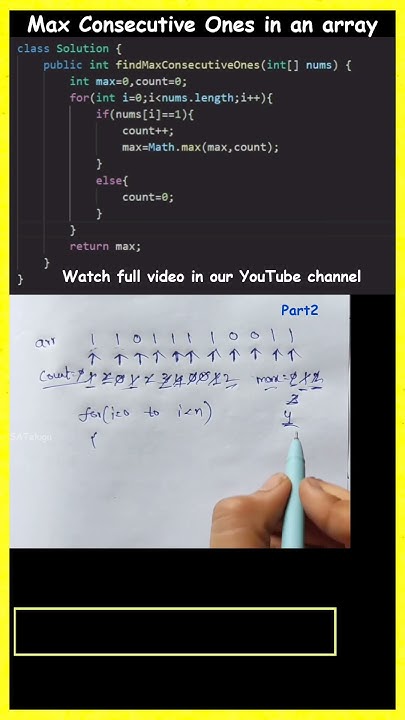 Max Consecutive Ones in an array
class Solution {
public int findMaxConsecutiveOnes(int[] nums) {
int max=0,count=0;
for(int i=0;i<nums.length;i++){
if(nums[i]==1){
count++;
max=Math.max(max,count);
}
else{
count=0;
}
}
return max;
}
}
Watch full video in our YouTube channel
Part2
arr 1 1 0 1 1 1 1 0 0 1 1
count= 2 max=
for(i=0 to i<n)
3
4
{
SATelugu